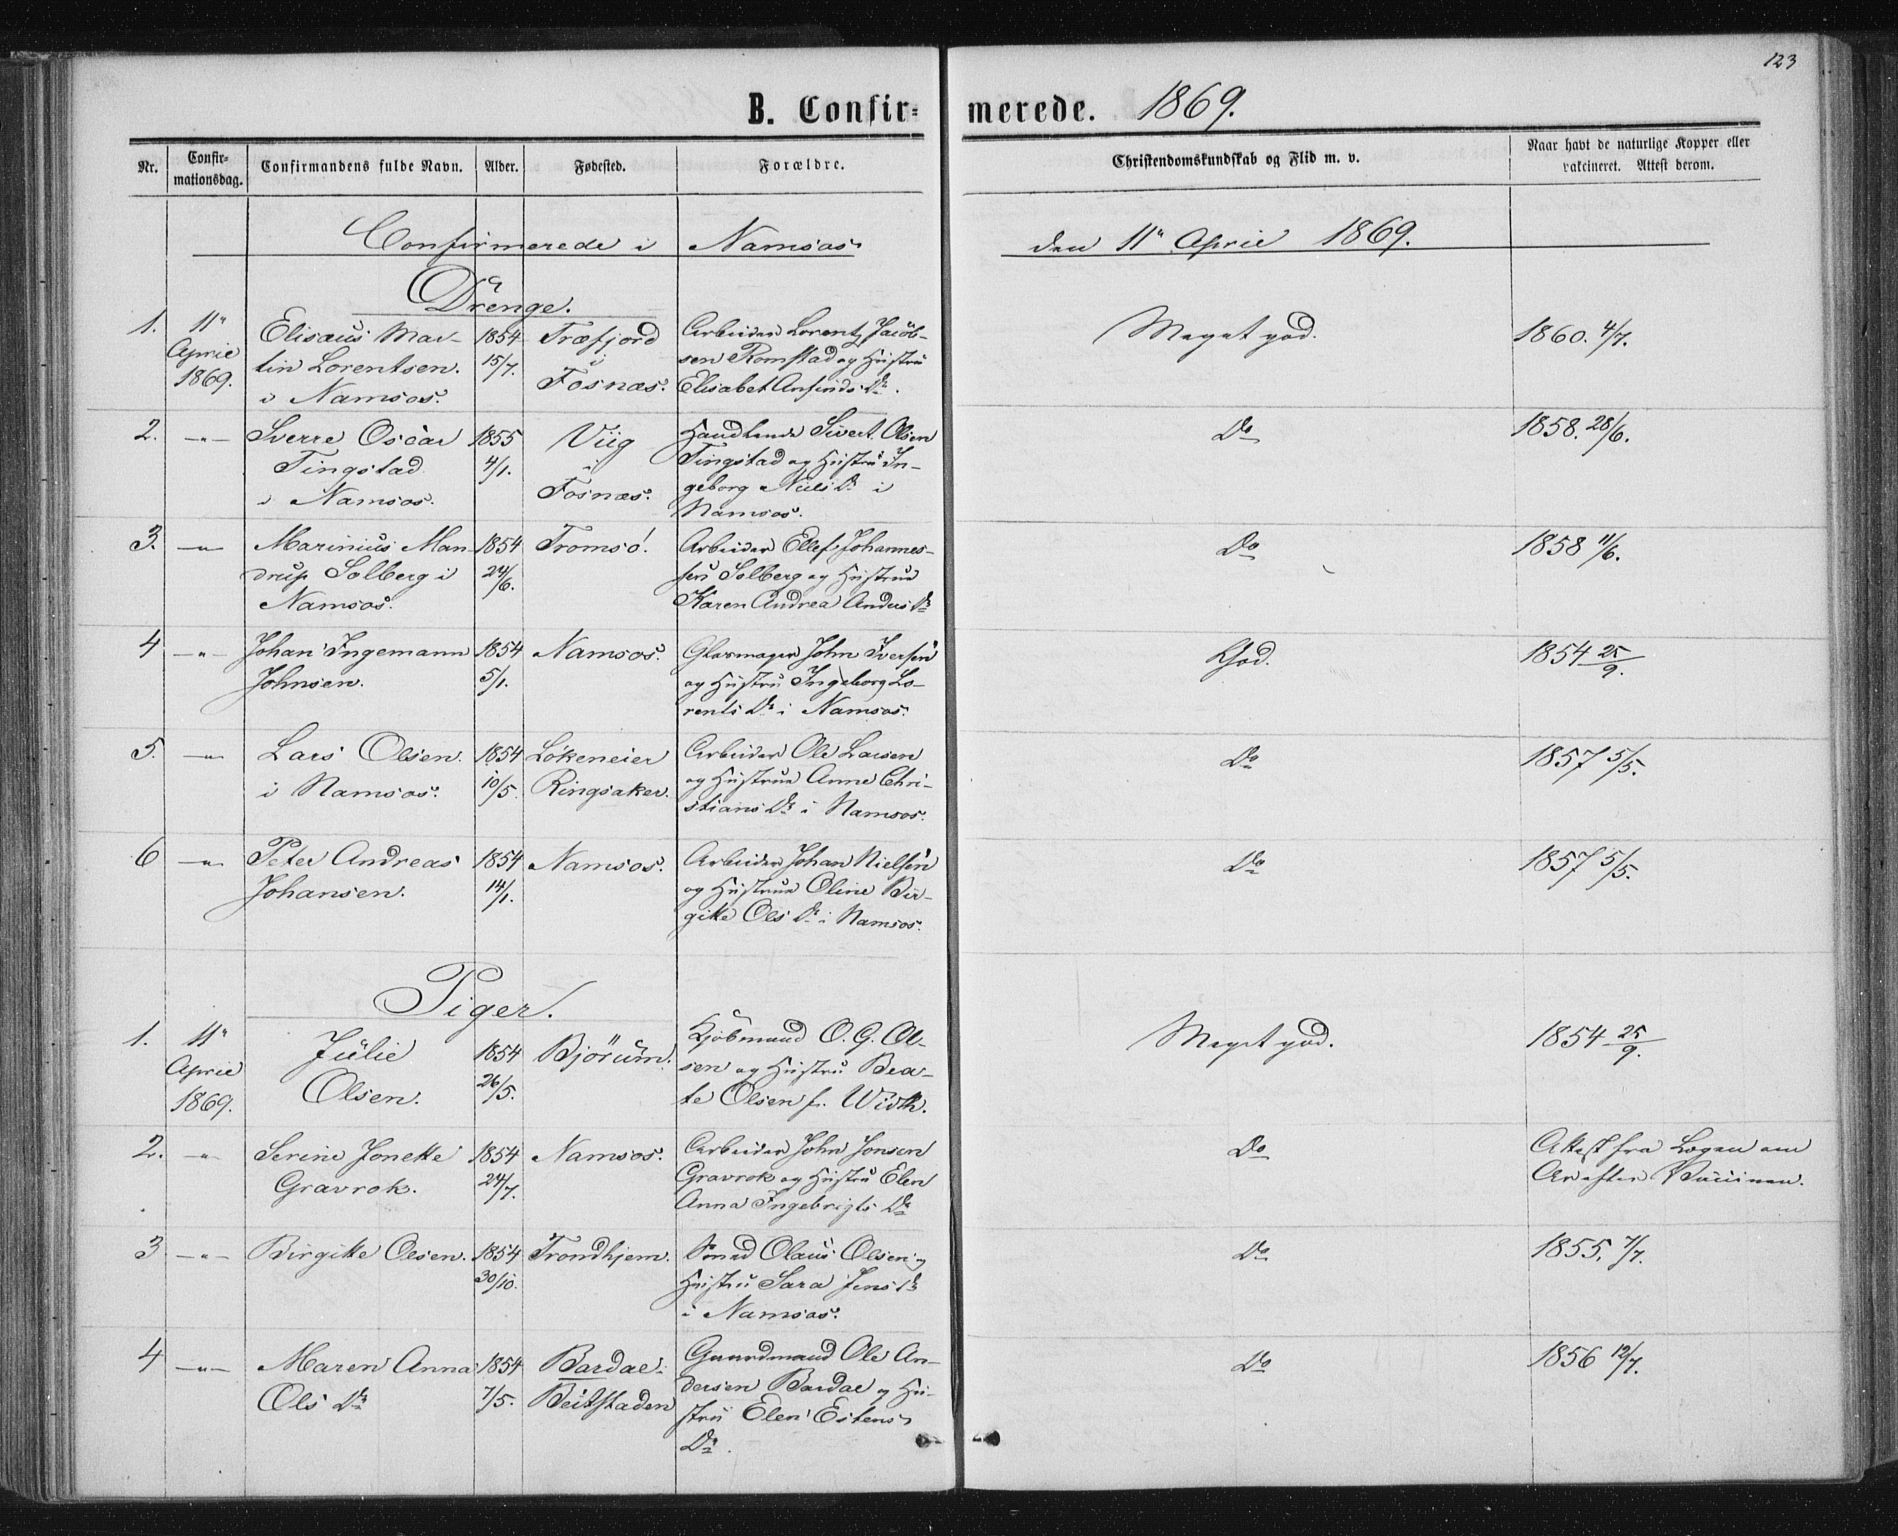 123
B. Confirmerede. 1869.
Nr. Confirmationsdag. Confirmandens fulde Navn. Alder. Fødested. Forældre. Christendomskundskab og Flid m. v. Naar havt de naturlige Kopper eller vakcineret. Attest derom.
Confirmerede i Namsos den 11te April 1869.
Drenge.
1. 11te Elisæus Mar- 1854 Træfjord Arbeider Lorentz Jacob- Meget god. 1860. 4/7.
April tin Lorentsen. 15/7. i sen Romstad og Hustru
1869. i Namsos. Fosnæs. Elisabet Anfinds Dr.
2. -"- Sverre Oscar 1855 Viig Handlende Sivert Olsen Do 1858. 28/6.
Tingstad 4/1. i Tingstad og Hustru In-
i Namsos. Fosnæs. geborg Niels Dr i
Namsos.
3. -"- Marinius Man- 1854 Tromsö. Arbeider Ellef Johannes- Do 1858 11/6.
drup Solberg i 24/6. sen Solberg og Hustrue
Namsos. Karen Andrea Anders Dr
4 -"- Johan Ingemann 1854 Namsos. Glasmager John Iversen God. 1854 25/9.
Johnsen. 5/1. og Hustru Ingeborg Lo-
rents Dr i Namsos.
5. -"- Lars Olsen 1854 Lökeneier Arbeider Ole Larsen Do 1857 5/5.
i Namsos. 10/5. Ringsaker. og Hustrue Anne Chri-
stians Dr i Namsos.
6 -"- Peter Andreas 1854 Namsos. Arbeider Johan Nielsen Do 1857 5/5.
Johansen. 14/1. og Hustrue Oline Bir-
gitte Ols Dr i Namsos.
Piger.
1. 11te Julie 1854 Bjørum. Kjøbmand O. G. Ol- Meget god. 1854 25/9.
April Olsen. 26/5. sen og Hustru Bea-
1869. te Olsen f. Width.
2. -"- Serine Jonette 1854 Namsos. Arbeider John Jonsen Do Attest fra Lægen om
Gravrok. 24/7. Gravrok og Hustru Elen Ar efter Vaccinen.
Anna Ingebrigts Dr
3 -"- Birgitte Olsen. 1854 Trondhjem. Smed Olaus Olsen og Do 1855. 7/7.
30/10. Hustru Sara Jens Dr
i Namsos.
4 -"- Maren Anna 1854 Bardal Gaardmand Ole An- Do 1856 12/7.
Ols Dr 7/5. Beitstaden dersen Bardal og Hu-
stru Elen Estens
Dr.